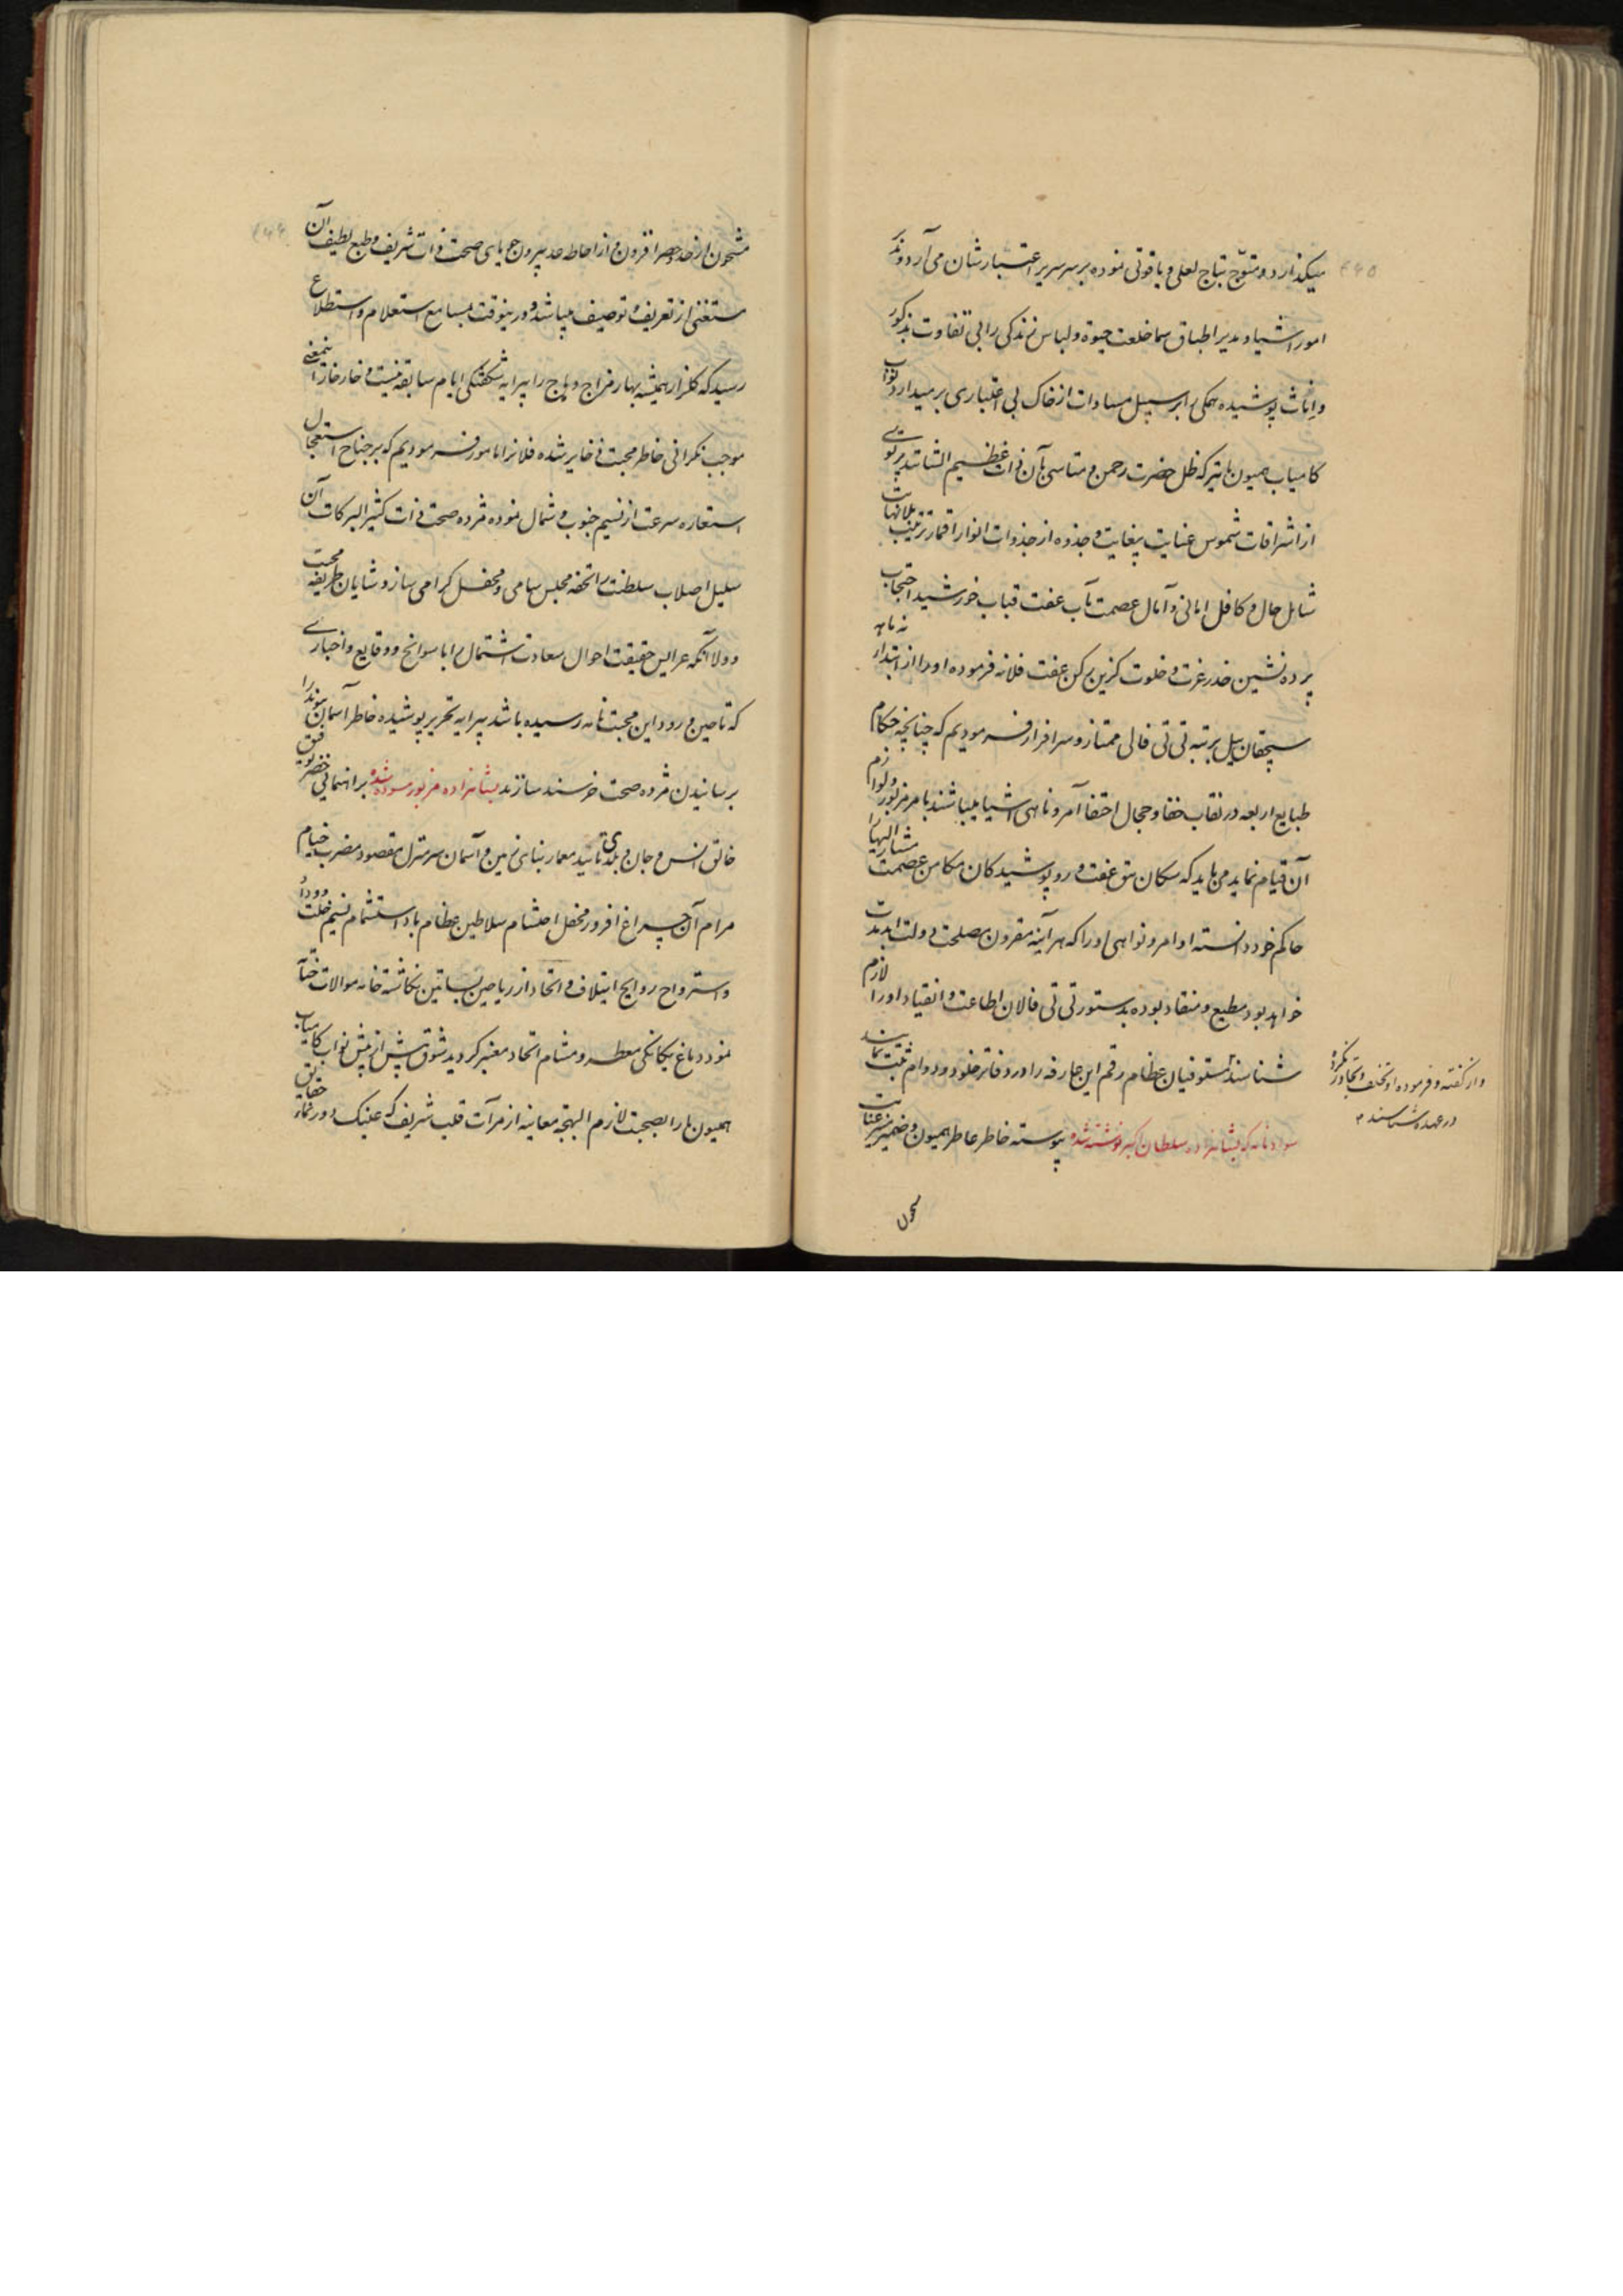 میکذارد و متوّج بتاج لعلی و یاقوتی نموده بر سر سریر اعتبارشان می آرد و مدبّر
امور اشیا و مدیر اطباق سما خلعت حیوة و لباس زندکی را بی تفاوت بذکور
و اناث پوشیده همکی را بر سبیل مساوات از خاک بی اعتباری برمیدارد نواب
کامیاب همیون ما نیز که ظل حضرت رحمن و متاسی بآن ذات عظیم الشانند پرتوی
از اشراقات شموس عنایت بیغایت و جذوه از جذوات انوار اقمار تربیت بلانهایت
شامل حال و کافل امانی و آمال عصمت مآب عفت قباب خورشید احتجاب
پرده نشین خدر عزت و خلوت کزین رکن عفت فلانه فرموده او را از ابتداء نه ماهه
سیچقان ییل برتبه تی تی فالی ممتاز و سرافراز فرمودیم که چنانچه حکام
طبایع اربعه در نقاب خفا و حجال اختفا آمر و ناهی اشیا میباشند بامر مزبور و لوازم
آن قیام نماید می باید که سکان تتق عفت و روپوشیدکان مکامن عصمت مشار الیها را
حاکم خود دانسته اوامر و نواهی او را که هر آینه مقرون بمصلحت دولت ابد مدت
خواهد بود مطیع و منقاد بوده بدستور تی تی فالان اطاعت و انقیاد او را لازم
شناسند مستوفیان عظام رقم این عارفه را در دفاتر خلود و دوام ثبت نمایند
و از کفته و فرموده او تخلف و تجاوز نکرده
در عهده شناسند
سواد نامه که بشاهزاده سلطان اکبر نوشته شده پیوسته خاطر عاطر همیون و ضمیر منیر عنایت
مشحون از حد و حصر افزون و از احاطه عد بیرون جویای صحت ذات شریف و طبع لطیف آن
مستغنی از تعریف و توصیف میباشد و درینوقت بمسامع استعلام و استطلاع
رسید که کلزار همیشه بهار مزاج وهاج را پیرایه شکفتکی ایام سابقه نیست و خار خار اینمعنی
موجب نکرانی خاطر محبت ذخایر شده فلانرا مامور فرمودیم که بر جناح استعجال
استعاره سرعت از نسیم جنوب و شمال نموده مژده صحت ذات کثیر البرکات آن
سلیل اصلاب سلطنت را تحفه مجلس سامی و محفل کرامی سازد شایان طریقه محبت
و ولا آنکه عرایس حقیقت احوال سعادت اشتمال را با سوانح و وقایع و اخباری
که تا حین ورود این محبت نامه رسیده باشد پیرایه تحریر پوشیده خاطر آسمان پیوند را
برسانیدن مژده صحت خرسند سازند بشاهزاده مزبور سوده شده براهنمائی خضر توفیق
خالق انس و جان و بلدی تائید معمار بنای زمین و آسمان سرمنزل مقصود مضرب خیام
مرام آن چراغ افروز محفل احتشام سلاطین عظام باد استشمام نسیم خلت و وداد
و استرواح روایح ایتلاف و اتحاد از ریاحین بساتین نکاشته خامه موالات ختام
نمود دماغ یکانکی معطر و مشام اتحاد معنبر کردید شوق بیش از پیش نواب کامیاب
همیون ما را بصحبت لازم البهجة معاینه از مرآت قلب شریف که عینک دورنمای حقایق